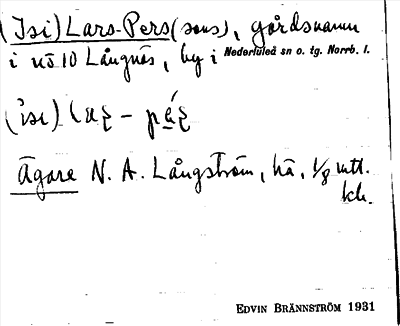 (Isi) Lars-Pers(sons), gårdsnamn
i nö 10 Långnäs, by i Nederluleå sn o. tg. Norrb. l.
Ägare N. A. Långström, hä, 1/8 mtl.
kh.
EDVIN BRÄNNSTRÖM 1931